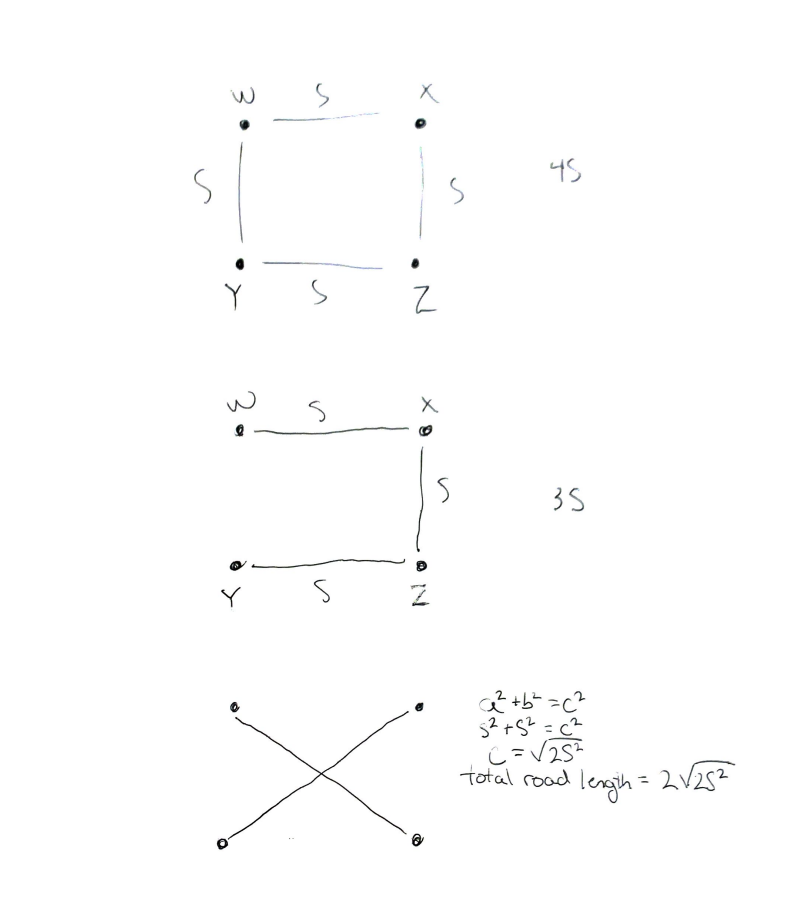 W S X
S S 4S
Y S Z
W S X
S 3S
Y S Z
a²+b²=c²
s²+s²=c²
c=√2s²
total road length = 2√2s²